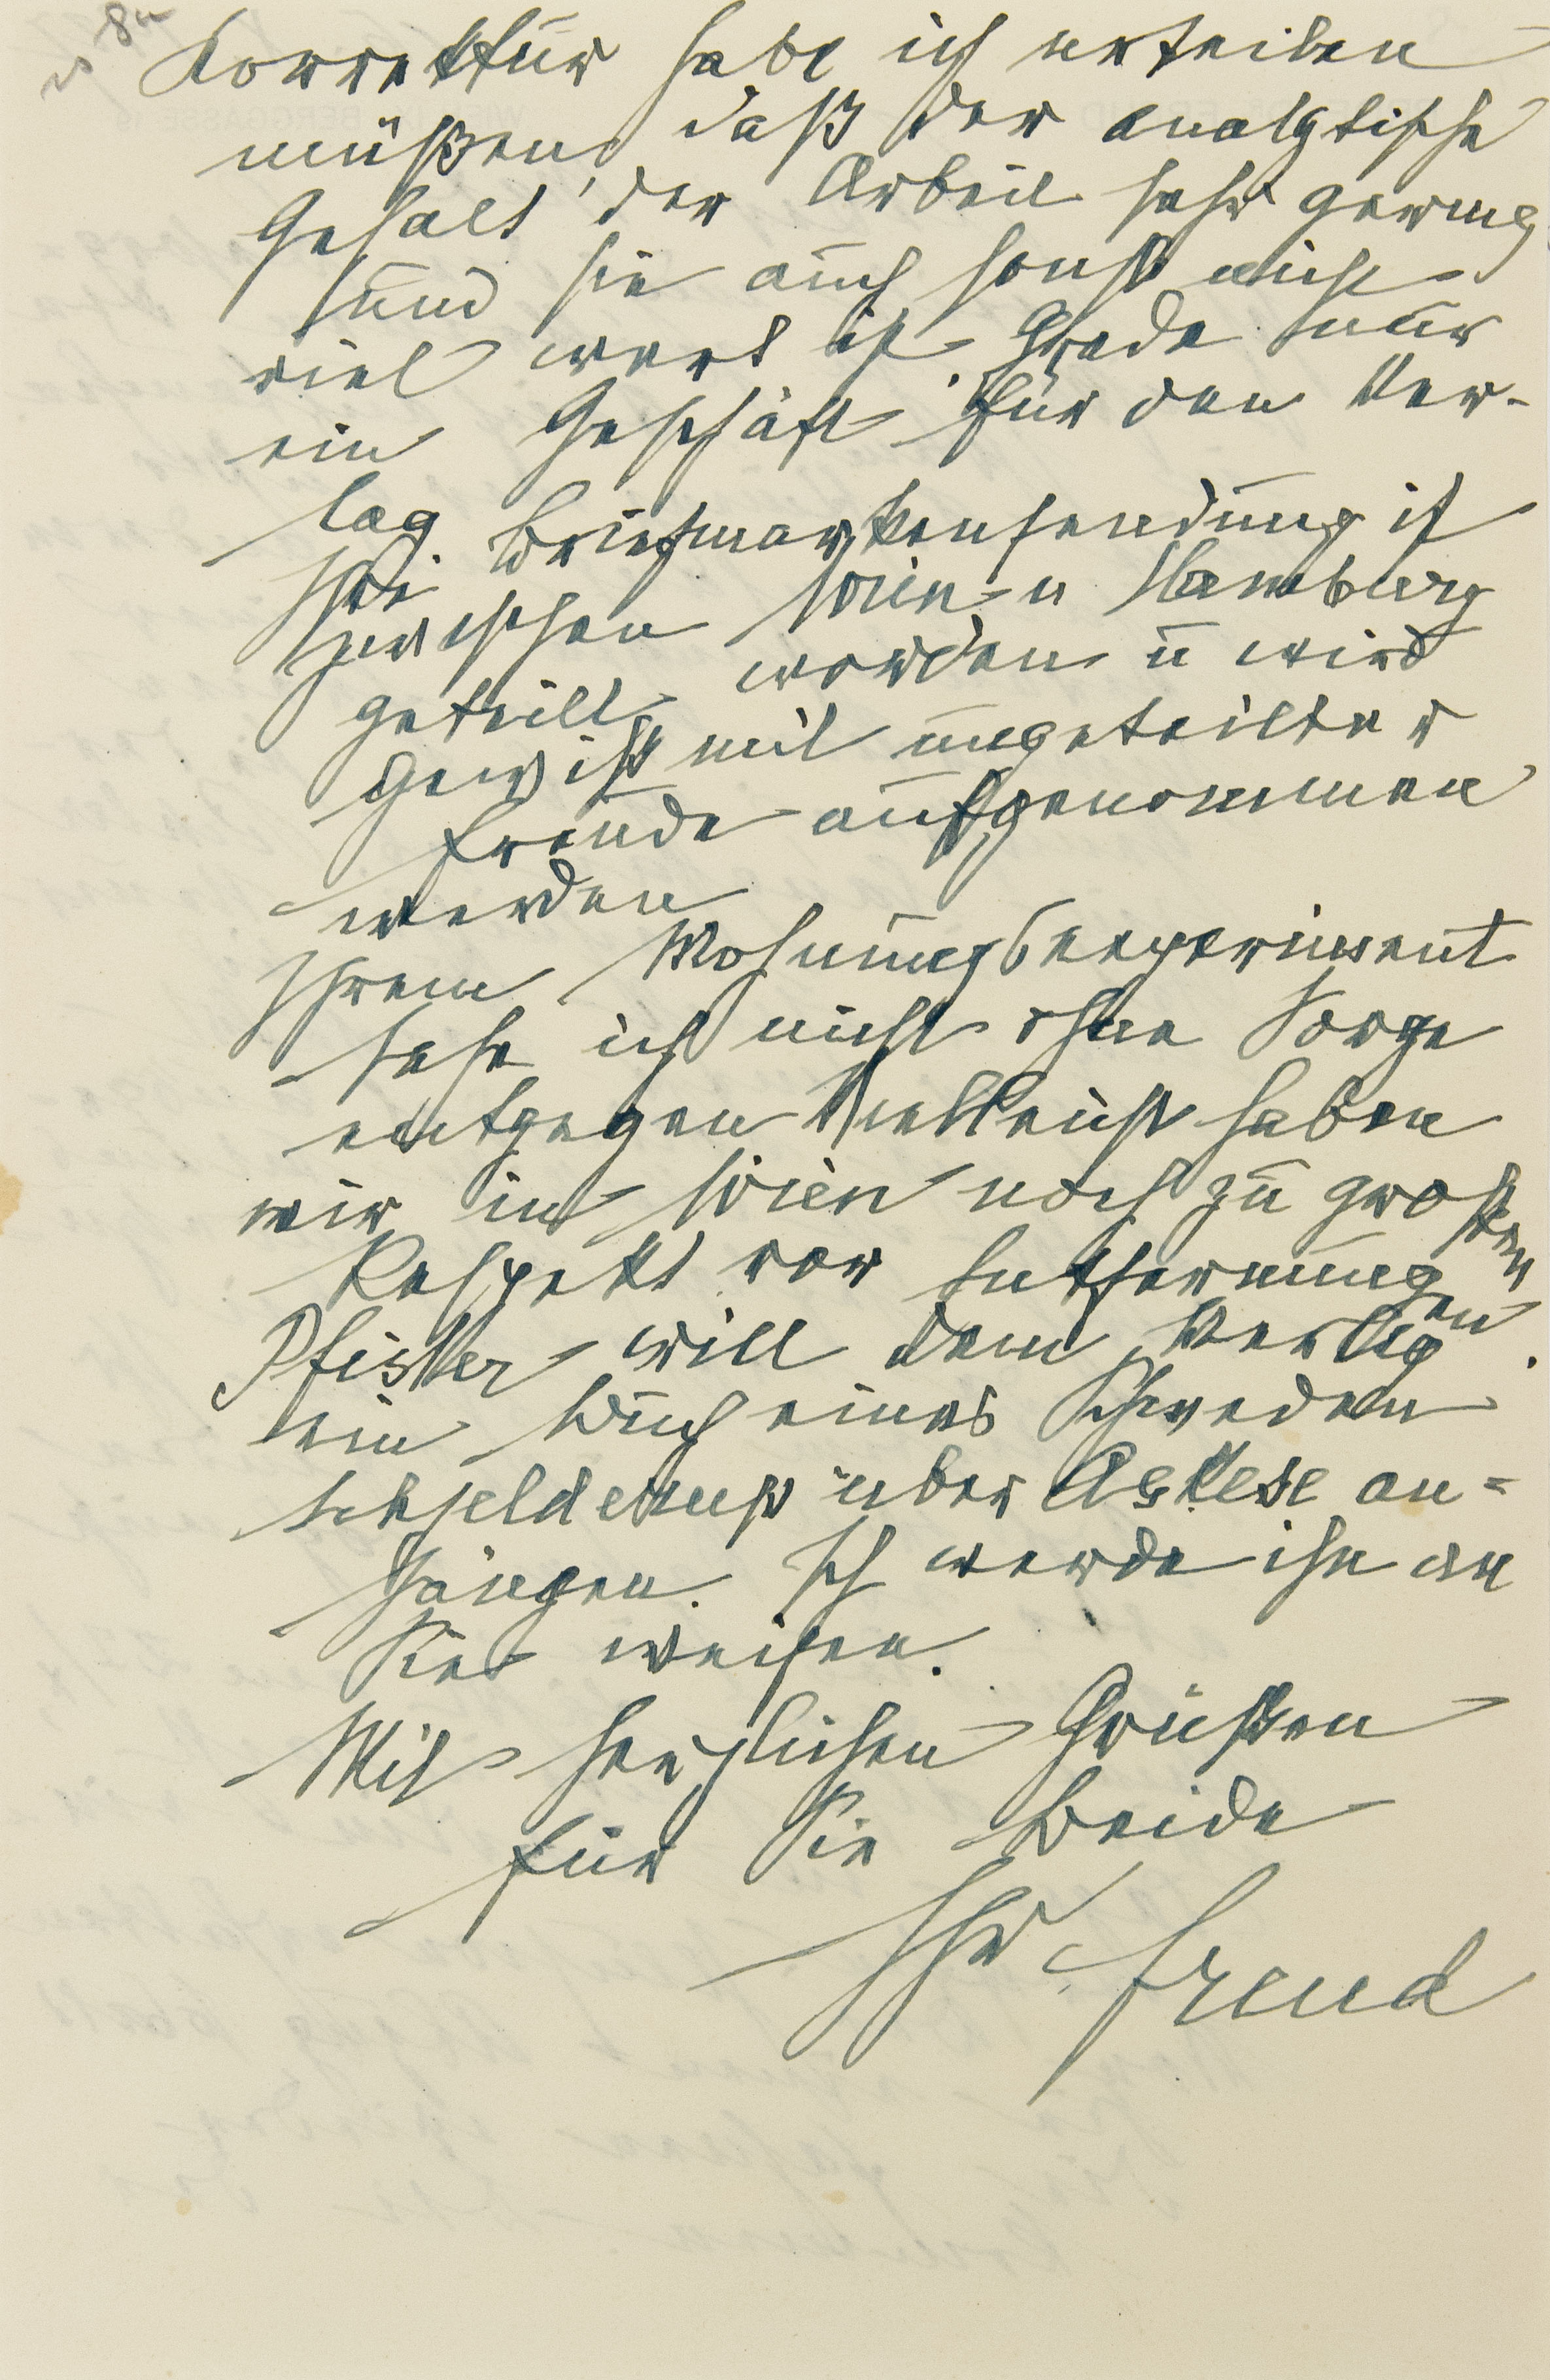 Korrektur habe ich urteilen
müßen, daß der analytische
Gehalt der Arbeit sehr gering
und sie auch sonst nicht
viel wert ist. Grade nur
ein Geschäft für den Ver-
lag.
Die Briefmarkensendung ist
zwischen Wien u Hamburg
geteilt worden u wird
gewiß mit ungeteilter
Freude aufgenommen
werden
Ihrem Wohnungsexperiment
sehe ich nicht ohne Sorge
entgegen Vielleicht haben
wir in Wien noch zu großen
Respekt vor Entfernungen.
Pfister will dem Verlag
ein Buch eines Schweden
Schjelderup über Askese an-
hängen. Ich werde ihn an
Sie weisen.
Mit herzlichen Grüßen
für Sie beide
Ihr Freud